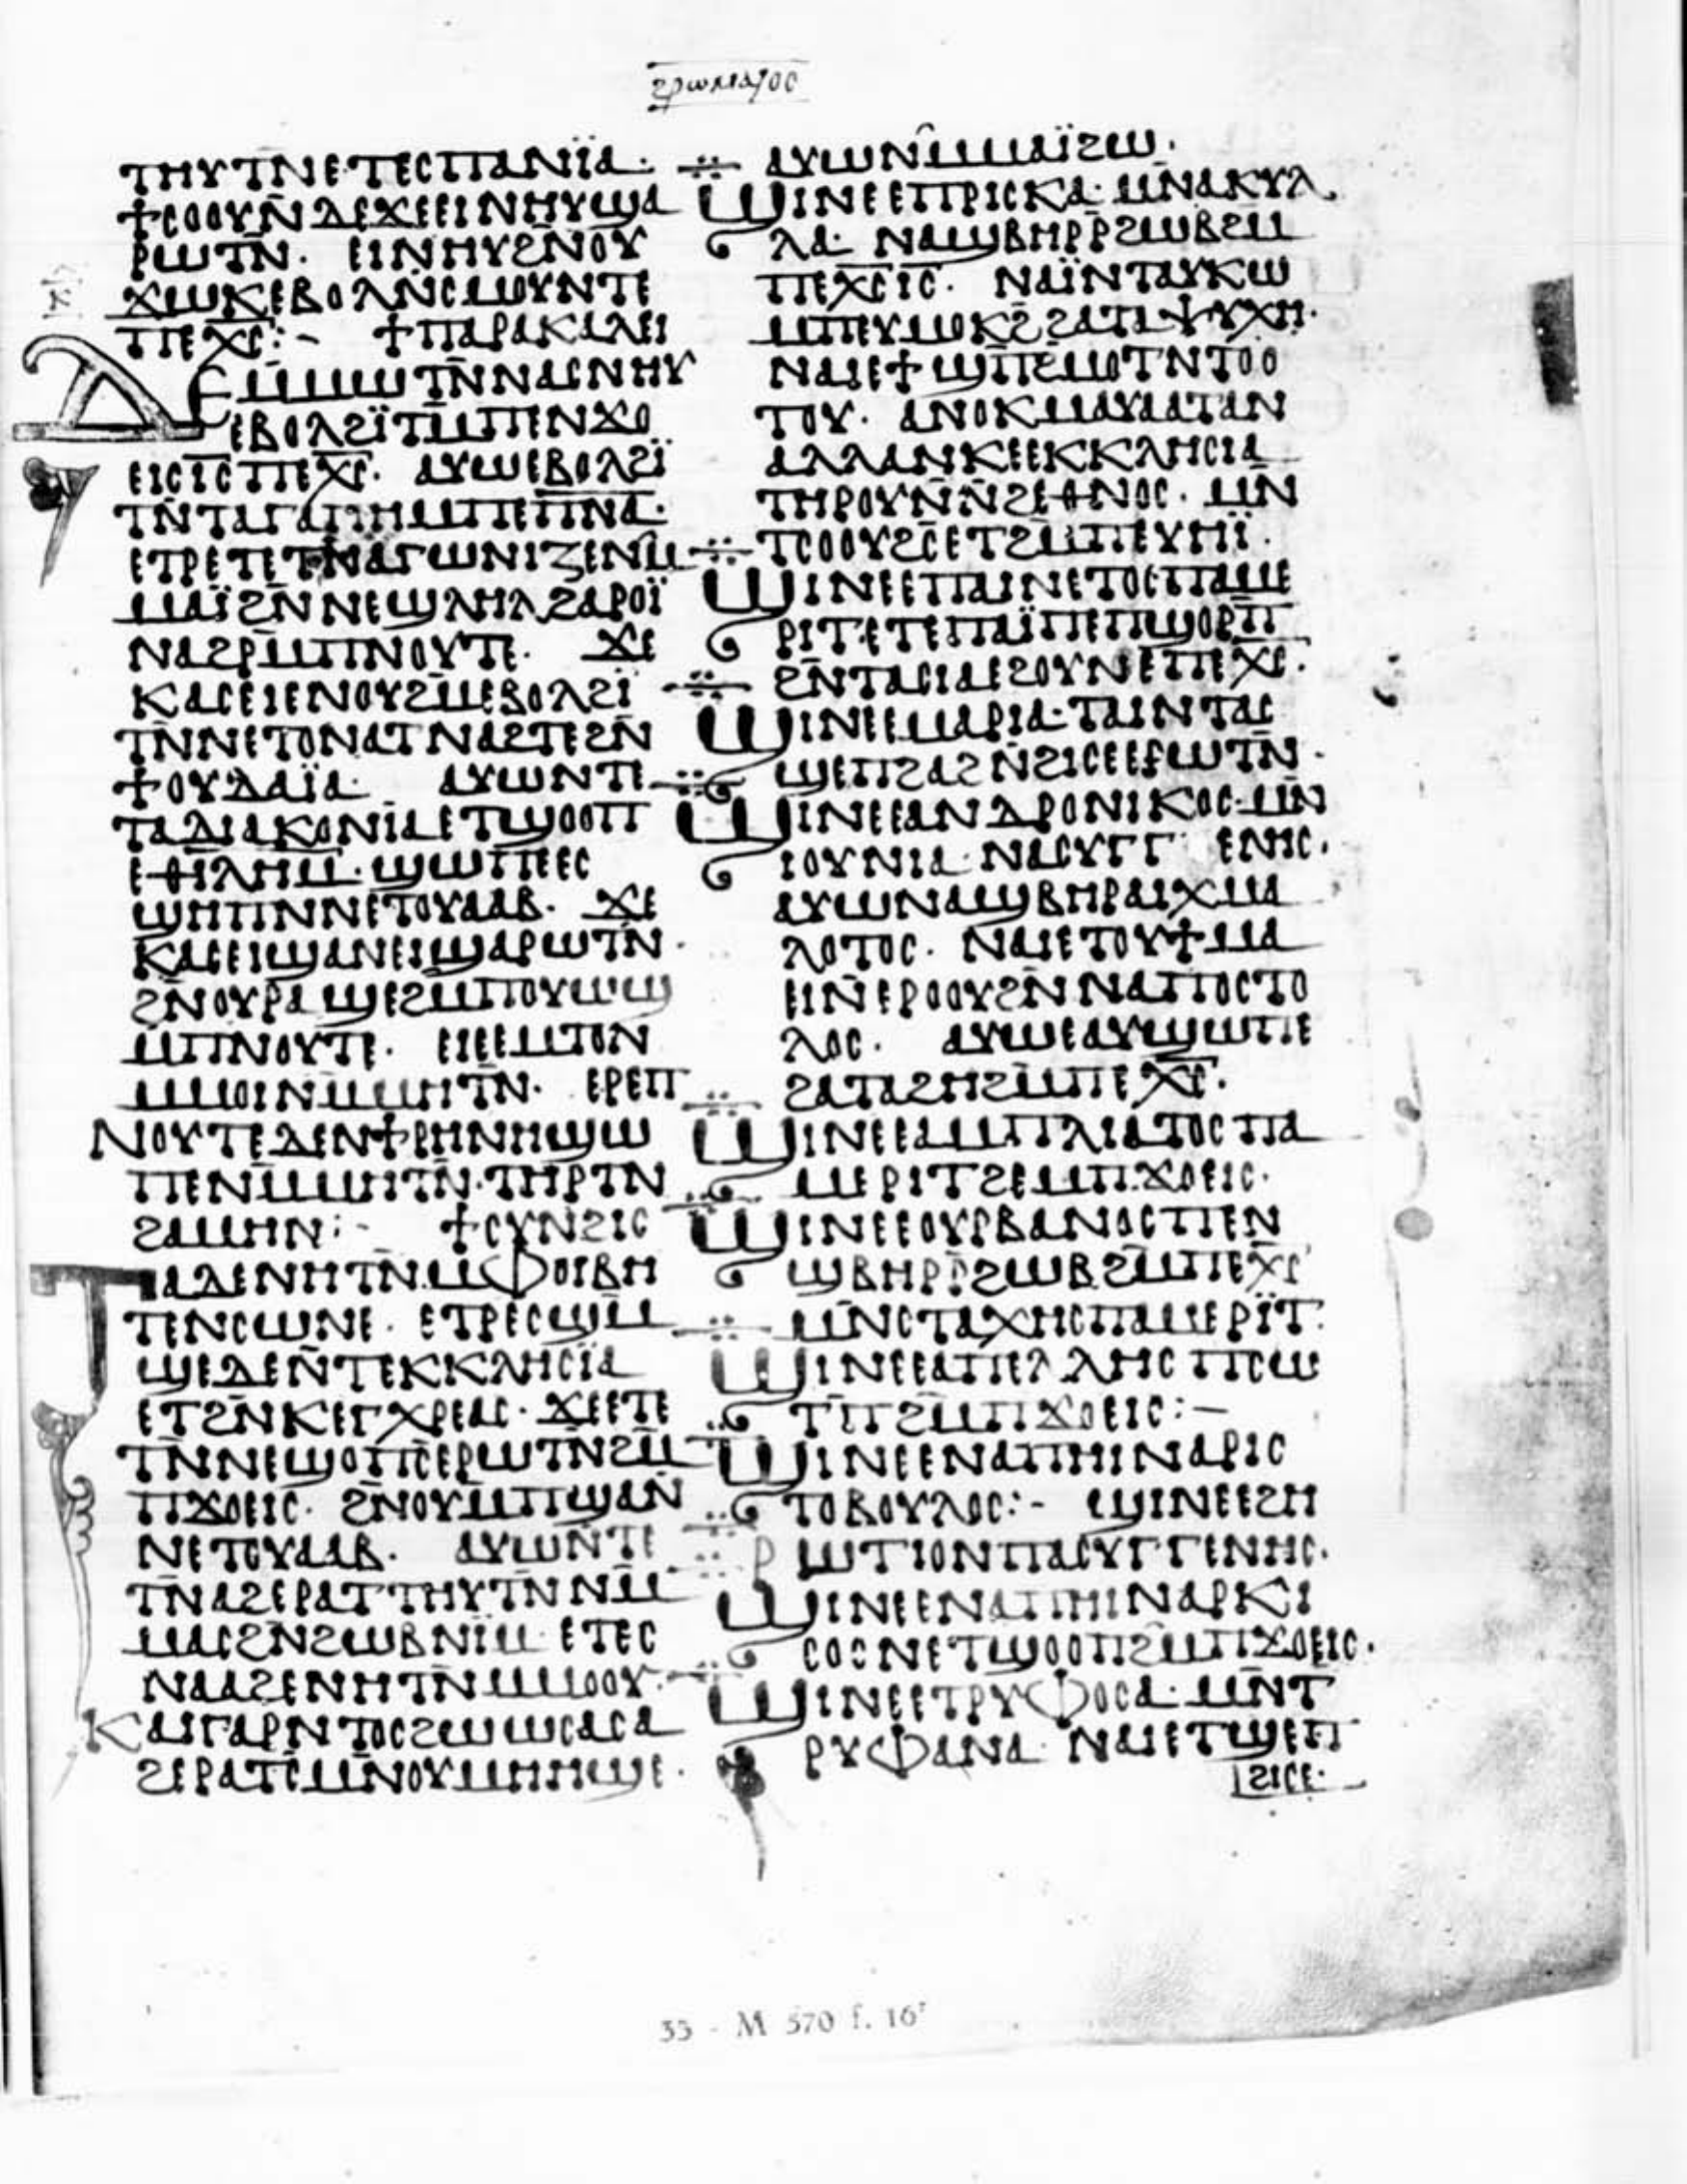 ϩⲣⲱⲙⲁⲓⲟⲥ
ⲧⲏⲩⲧⲛ̄ⲉⲧⲉⲥⲡⲁⲛⲓ̈ⲁ·
ϯⲥⲟⲟⲩⲛ̄ⲇⲉϫⲉⲉⲓⲛⲏⲩϣⲁ
ⲣⲱⲧⲛ̄· ⲉⲓⲛⲏⲩϩⲛ̄ⲟⲩ
ϫⲱⲕⲉⲃⲟⲗⲛ̄ⲥⲙⲟⲩⲛⲧⲉ
ⲡⲉⲭ̄ⲥ̄:- ϯⲡⲁⲣⲁⲕⲁⲗⲉⲓ
ⲇⲉⲙⲙⲱⲧⲛ̄ⲛⲁⲥⲛⲏⲩ
ⲉⲃⲟⲗϩⲓ̈ⲧⲙ̄ⲡⲉⲛϫⲟ
ⲉⲓⲥⲓ̄ⲥ̄ⲡⲉⲭ̄ⲥ̄· ⲁⲩⲱⲉⲃⲟⲗϩⲓ̈
ⲧⲛ̄ⲧⲁⲅⲁⲡⲏⲙ̄ⲡⲉⲡ̄ⲛ̄ⲁ̄·
ⲉⲧⲣⲉⲧⲉⲧⲛ̄ⲁⲅⲱⲛⲓⲍⲉⲛⲙ̄
ⲙⲁⲓ̈ϩⲛ̄ⲛⲉϣⲗⲏⲗϩⲁⲣⲟⲓ̈
ⲛⲁϩⲣⲙ̄ⲡⲛⲟⲩⲧⲉ· ϫⲉ
ⲕⲁⲥⲉⲓⲉⲛⲟⲩϩⲙ̄ⲉⲃⲟⲗϩⲓ̈
ⲧⲛ̄ⲛⲉⲧⲟⲛⲁⲧⲛⲁϩⲧⲉϩⲛ̄
ϯⲟⲩⲇⲁⲓ̈ⲁ· ⲁⲩⲱⲛⲧⲉ
ⲧⲁⲇⲓⲁⲕⲟⲛⲓ̈ⲁⲉⲧϣⲟⲟⲡ
ⲉⲑⲓ̄ⲗ̄ⲏ̄ⲙ̄·ϣⲱⲡⲉⲉⲥ
ϣⲏⲡⲛ̄ⲛⲉⲧⲟⲩⲁⲁⲃ· ϫⲉ
ⲕⲁⲥⲉⲓϣⲁⲛⲉⲓϣⲁⲣⲱⲧⲛ̄·
ϩⲛ̄ⲟⲩⲣⲁϣⲉϩⲙ̄ⲡⲟⲩⲱϣ
ⲙ̄ⲡⲛⲟⲩⲧⲉ· ⲉⲓⲉⲉⲙ̄ⲧⲟⲛ
ⲙⲙⲟⲓⲛⲙ̄ⲙⲏⲧⲛ̄· ⲉⲣⲉⲡ
ⲛⲟⲩⲧⲉⲇⲉⲛϯⲣⲏⲛⲏϣⲱ
ⲡⲉⲛⲙ̄ⲙⲏⲧⲛ̄·ⲧⲏⲣⲧⲛ̄
ϩⲁⲙⲏⲛ:- ϯⲥⲩⲛϩⲓⲥ
ⲧⲁⲇⲉⲛⲏⲧⲛ̄ⲙ̄ⲫⲟⲓⲃⲏ
ⲧⲉⲛⲥⲱⲛⲉ· ⲉⲧⲣⲉⲥϣⲙ̄
ϣⲉⲇⲉⲛ̄ⲧⲉⲕⲕⲗⲏⲥⲓ̈ⲁ
ⲉⲧϩⲛ̄ⲕⲉⲅⲭⲣⲉⲁⲥ· ϫⲉⲉⲧⲉ
ⲧⲛ̄ⲛⲉϣⲟⲡⲥ̄ⲉⲣⲱⲧⲛ̄ϩⲙ̄
ⲡϫⲟⲉⲓⲥ· ϩⲛ̄ⲟⲩⲙ̄ⲡϣⲁⲛ̄
ⲛⲉⲧⲟⲩⲁⲁⲃ· ⲁⲩⲱⲛ̄ⲧⲉ
ⲧⲛ̄ⲁϩⲉⲣⲁⲧⲧⲏⲩⲧⲛ̄ⲛⲙ̄
ⲙⲁⲥϩⲛ̄ϩⲱⲃⲛⲓ̈ⲙ· ⲉⲧⲉⲥ
ⲛⲁⲁϩⲉⲛⲏⲧⲛ̄ⲙⲙⲟⲟⲩ·
ⲕⲁⲓⲅⲁⲣⲛ̄ⲧⲟⲥϩⲱⲱⲥⲁⲥⲁ
ϩⲉⲣⲁⲧⲥ̄ⲙⲛ̄ⲟⲩⲙⲏⲏϣⲉ·
ⲁⲩⲱⲛⲙ̄ⲙⲁⲓ̈ϩⲱ·
ϣⲓⲛⲉⲉⲡⲣⲓⲥⲕⲁ· ⲙⲛ̄ⲁⲕⲩⲗ
ⲗⲁ· ⲛⲁϣⲃⲏⲣⲣ̄ϩⲱⲃϩⲙ̄
ⲡⲉⲭ̄ⲥ̄ⲓ̄ⲥ̄· ⲛⲁⲓ̈ⲛⲧⲁⲩⲕⲱ
ⲙ̄ⲡⲉⲩⲙⲟⲕϩ̄ϩⲁⲧⲁⲯⲩⲭⲏ·
ⲛⲁⲓⲉϯϣⲡ̄ϩⲙⲟⲧⲛⲧⲟⲟ
ⲧⲟⲩ· ⲁⲛⲟⲕⲙⲁⲩⲁⲁⲧⲁⲛ
ⲁⲗⲗⲁⲛⲕⲉⲉⲕⲕⲗⲏⲥⲓⲁ
ⲧⲏⲣⲟⲩⲛ̄ⲛ̄ϩⲉⲑⲛⲟⲥ· ⲙⲛ̄
ⲧⲥⲟⲟⲩϩⲥ̄ⲉⲧϩⲙ̄ⲡⲉⲩⲏⲓ̈·
ϣⲓⲛⲉⲉⲡⲁⲓⲛⲉⲧⲟⲥⲡⲁⲙⲉ
ⲣⲓⲧ·ⲉⲧⲉⲡⲁⲓ̈ⲡⲉⲡϣⲟⲣⲡ̄
ϩⲛ̄ⲧⲁⲥⲓⲁⲉϩⲟⲩⲛⲉⲡⲉⲭ̄ⲥ̄·
ϣⲓⲛⲉⲉⲙⲁⲣⲓⲁ·ⲧⲁⲓⲛⲧⲁⲥ
ϣⲉⲡϩⲁϩⲛ̄ϩⲓⲥⲉⲉⲣⲱⲧⲛ̄·
ϣⲓⲛⲉⲉⲁⲛⲇⲣⲟⲛⲓⲕⲟⲥ·ⲙⲛ̄
ⲓⲟⲩⲛⲓⲁ·ⲛⲁⲥⲩⲅⲅ ⲉⲛⲏⲥ·
ⲁⲩⲱⲛⲁϣⲃⲏⲣⲁⲓⲭⲙⲁ
ⲗⲟⲧⲟⲥ· ⲛⲁⲓⲉⲧⲟⲩϯⲙⲁ
ⲉⲓⲛ̄ⲉⲣⲟⲟⲩϩⲛ̄ⲛⲁⲡⲟⲥⲧⲟ
ⲗⲟⲥ· ⲁⲩⲱⲉⲁⲩϣⲱⲡⲉ
ϩⲁⲧⲁϩⲏϩⲙ̄ⲡⲉⲭ̄ⲥ̄·
ϣⲓⲛⲉⲉⲁⲙⲡⲗⲓⲁⲧⲟⲥⲡⲁ
ⲙⲉⲣⲓⲧϩⲉⲙⲡϫⲟⲉⲓⲥ·
ϣⲓⲛⲉⲉⲟⲩⲣⲃⲁⲛⲟⲥⲡⲉⲛ
ϣⲃⲏⲣⲣ̄ϩⲱⲃϩⲙ̄ⲡⲉⲭ̄ⲥ̄
ⲙⲛ̄ⲥⲧⲁⲭⲏⲥⲡⲁⲙⲉⲣⲓ̈ⲧ·
ϣⲓⲛⲉⲉⲁⲡⲉⲗⲗⲏⲥ ⲡⲥⲱ
ⲧⲡϩⲙ̄ⲡϫⲟⲉⲓⲥ:-
ϣⲓⲛⲉⲉⲛⲁⲡⲏⲓⲛⲁⲣⲓⲥ
ⲧⲟⲃⲟⲩⲗⲟⲥ:- ϣⲓⲛⲉⲉϩⲏ
ⲣⲱⲧⲓⲟⲛⲡⲁⲥⲩⲅⲅⲉⲛⲏⲥ·
ϣⲓⲛⲉⲉⲛⲁⲡⲏⲓⲛⲁⲣⲕⲓ
ⲥⲟⲥⲛⲉⲧϣⲟⲟⲡϩⲙ̄ⲡϫⲟⲉⲓⲥ·
ϣⲓⲛⲉⲉⲧⲣⲩⲫⲟⲥⲁ·ⲙⲛ̄ⲧ
ⲣⲩⲫⲁⲛⲁ·ⲛⲁⲓⲉⲧϣⲉⲡ
ϩⲓⲥⲉ·
33 - M 570 f. 16ʳ